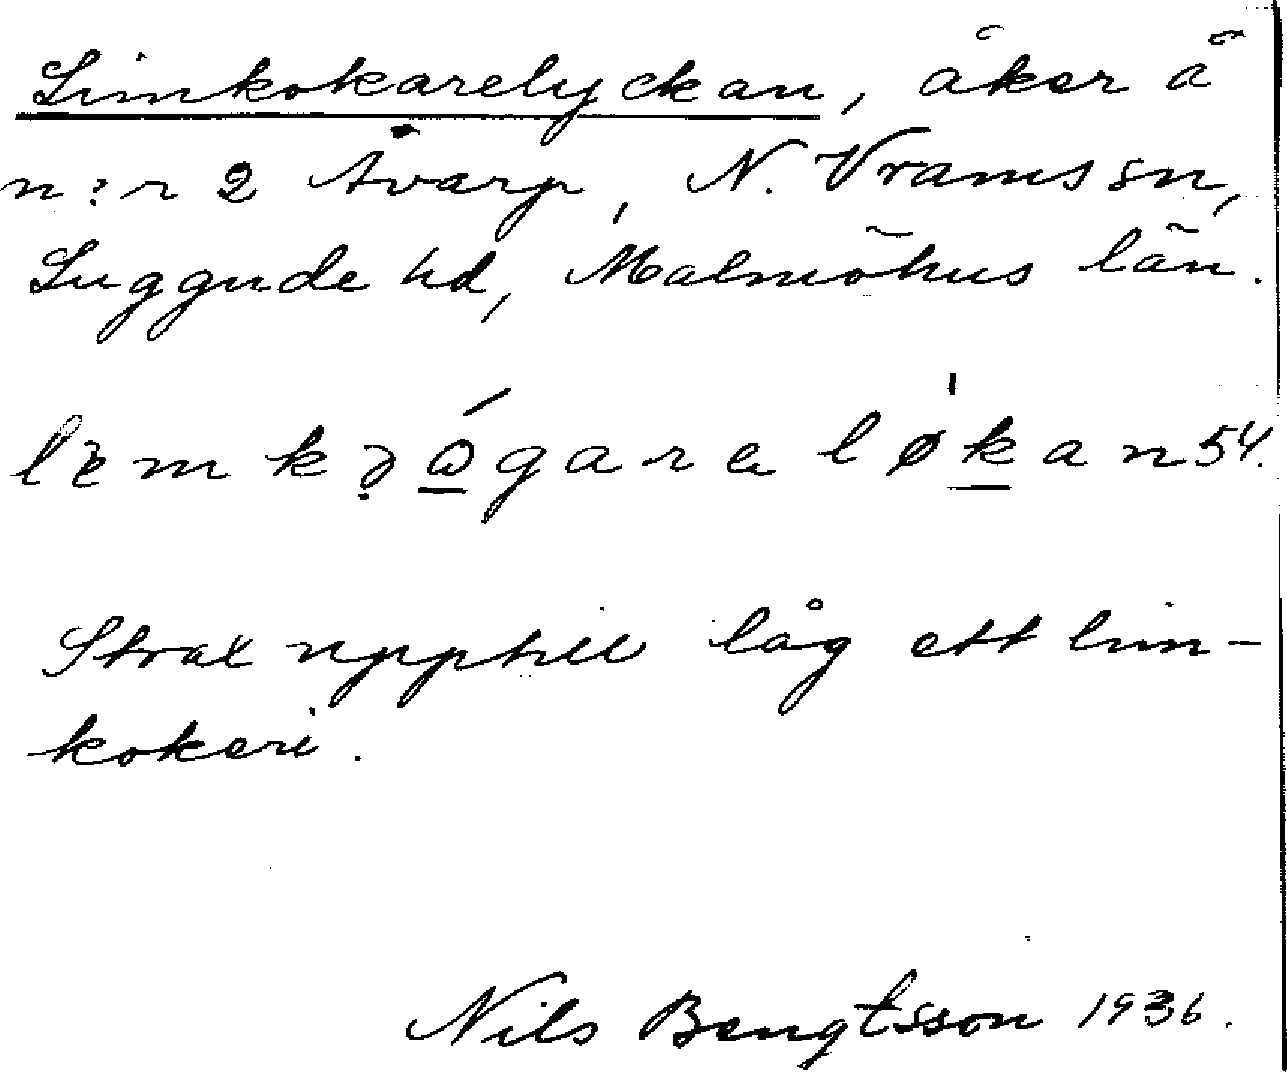 Limkokarelyckan, åker å
n:r 2 Åvarp, N. Vrams sn,
Luggude hd, Malmöhus län.
lemkǝågara løkan 54.
Strax upptill låg ett lim-
kokeri.
Nils Bengtsson 1936.